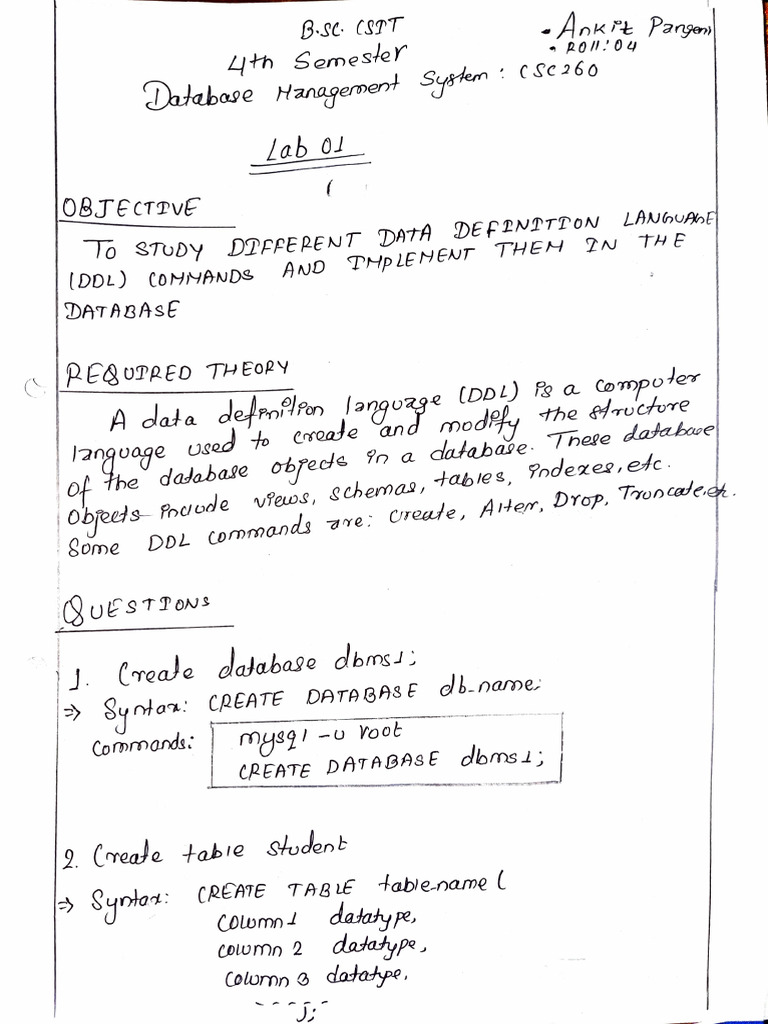 B.SC. CSIT
• Ankit Pangeni
• Roll: 04
4th Semester
Database Management System: CSC260
Lab 01
OBJECTIVE
TO STUDY DIFFERENT DATA DEFINITION LANGUAGE
(DDL) COMMANDS AND IMPLEMENT THEM IN THE
DATABASE
REQUIRED THEORY
A data definition language (DDL) is a computer
language used to create and modify the structure
of the database objects in a database. These database
objects include views, schemas, tables, indexes, etc.
Some DDL commands are: Create, Alter, Drop, Truncate, etc.
QUESTIONS
1. Create database dbms1;
⇒ Syntax: CREATE DATABASE db_name;
Commands: mysql -u root
CREATE DATABASE dbms1;
2. Create table student
⇒ Syntax: CREATE TABLE table-name (
column1 datatype,
column 2 datatype,
column 3 datatype,
-----);